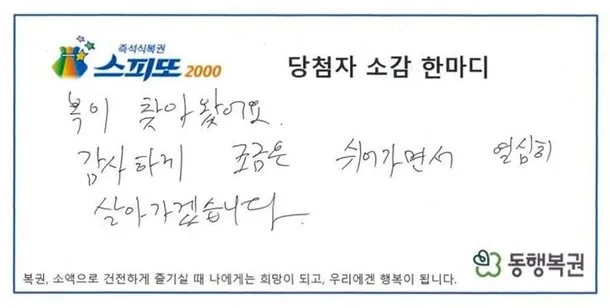 즉석식복권
스피또 2000
당첨자 소감 한마디
복이 찾아왔어요.
감사하게 조금은 쉬어가면서 열심히
살아가겠습니다.
동행복권
복권, 소액으로 건전하게 즐기실 때 나에게는 희망이 되고, 우리에겐 행복이 됩니다.